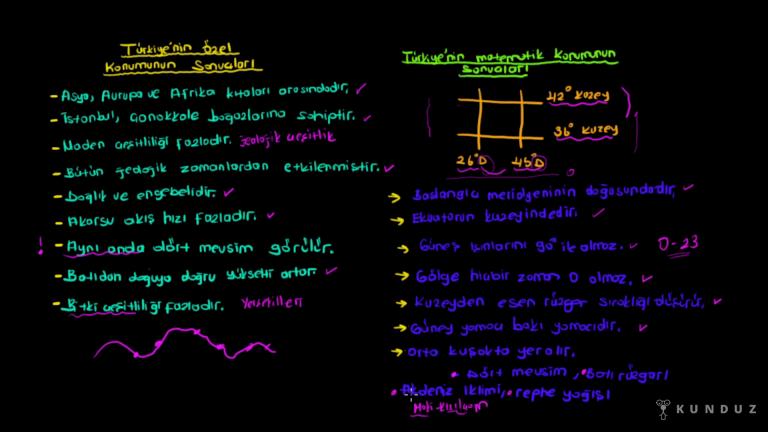 Türkiye'nin özel
Konumunun Sonuçları
- Asya, Avrupa ve Afrika kıtaları arasındadır,
- İstanbul, Çanakkale boğazlarına sahiptir.
- Maden çeşitliliği fazladır. Jeolojik çeşitlilik
- Bütün jeolojik zamanlardan etkilenmiştir.
- Dağlık ve engebelidir.
- Akarsu akış hızı fazladır.
! - Aynı anda dört mevsim görülür.
- Batıdan doğuya doğru yükselti artar.
- Bitki çeşitliliği fazladır. Yerşekilleri
Türkiye'nin matematik konumunun
Sonuçları
42° Kuzey
36° Kuzey
26°D 45°D
→ Başlangıç meridyeninin doğusundadır,
→ Ekvatorun kuzeyindedir.
→ Güneş ışınlarını 90° ile almaz. 0-23
→ Gölge hiçbir zaman 0 olmaz.
→ Kuzeyden esen rüzgar sıcaklığı düşürür,
→ Güney yamacı bakı yamacıdır.
→ Orta kuşakta yer alır.
• Dört mevsim, • Batı rüzgarı
• Akdeniz iklimi, • cephe yağışı
KUNDUZ